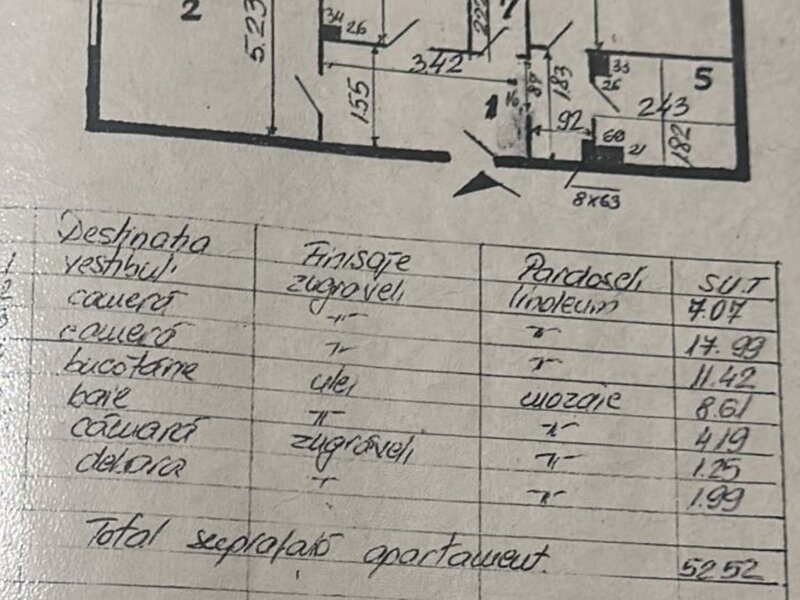 2
5.23
34
26
222
7
3.42
155
1
16
48
183
92
33
26
5
243
60
21
182
8x63
Destinatia Finisaje Pardoseli S.U.T
1 vestibul zugraveli linoleum 7.07
2 cameră -〃- 〃 17.99
3 cameră 〃 〃 11.42
bucătărie ulei mozaic 8.61
baie 〃 〃 4.19
cămară zugrăveli 〃 1.25
debara 〃 〃 1.99
Total suprafață apartament. 52.52